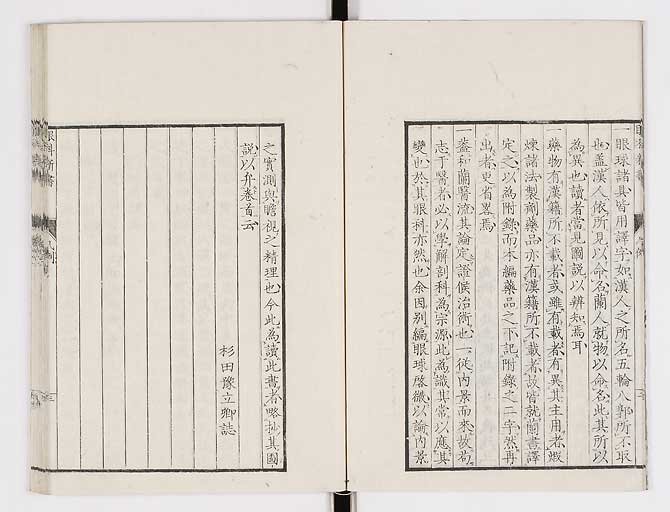 一眼球諸具皆用譯字如漢人之所名五輪八郭所不取
也蓋漢人依所見以命名蘭人就物以命名此其所以
為異也讀者當見圖說以辨知焉耳
一藥物有漢籍所不載者或雖有載者有異其主用者蝦
煉諸法製劑藥品亦有漢籍所不載者故皆就蘭書譯
定之以為附錄而本編藥品之下記附錄之二字然再
出者更省畧焉
一蓋和蘭醫流其論定證候治術也一從內景而來故苟
志于醫者必以學解剖科為宗源此為識其常以應其
變也於其眼科亦然也余因別編眼球啓微以論內景
之實測與瞻視之精理也今此為讀此書者略抄其圖
說以弁卷首云
杉田豫立卿誌
眼科新書